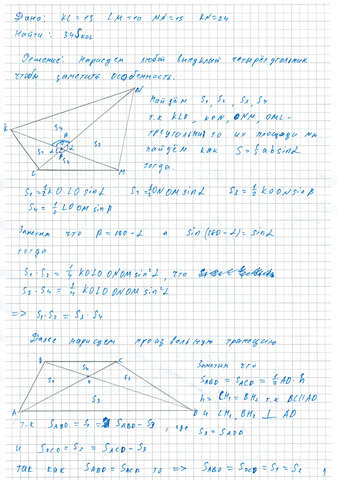 Дано: KL = 13 LM = 10 MN = 15 KN = 24
Найти: 34S
Решение: Нарисуем любой выпуклый четырёхугольник
чтобы заметить особенность.
N
Найдём S₁, S₂, S₃, S₄
K
S₄
т.к KLO, KON, ONM, OML -
треугольники то их площади мы
S₁
β
S₂
найдём как S = ½ ab sinα
L
M
тогда.
S₁ = ½ KO LO sinα S₂ = ½ NO OM sinα S₃ = ½ KO ON sinβ
S₄ = ½ LO OM sinβ
Заметим что β = 180-α а sin(180-α) = sinα
тогда
S₁ · S₂ = ¼ KO LO ON OM sin²α, что
S₃ · S₄ = ¼ KO LO ON OM sin²α
=> S₁ · S₂ = S₃ · S₄
Далее нарисуем произвольную трапецию
B
C
Заметим что
S₄
S_ABD = S_ACD = ½ AD · h
S₁
S₂
h = CH₁ = BH₂ т.к BC||AD
S₃
A
D
и CH₁, BH₂ ⊥ AD
т.к S_ABO = S₁ = S_ABD - S₃, где
S₃ = S_AOD
и S_DCO = S₂ = S_ACD - S₃
так как S_ABD = S_ACD то => S_ABO = S_DCO = S₁ = S₂